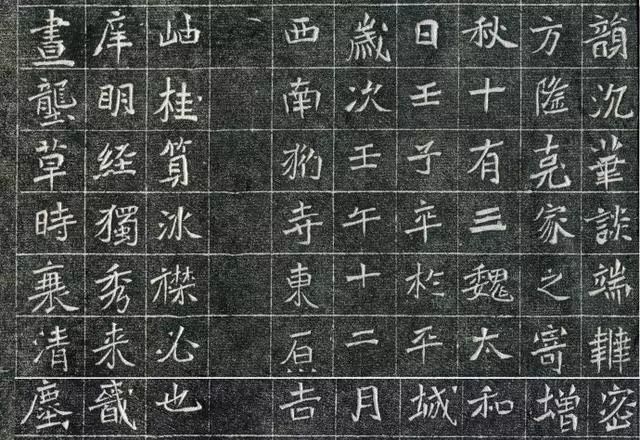 韻沉華談端韡密
方隆克家之寄增
秋十有三魏太和
日壬子卒於平城
歲次壬午十二月
西南豹寺東原吉
岵桂筭冰襟必也
庠明經獨秀来
晝龔草時襄清塵